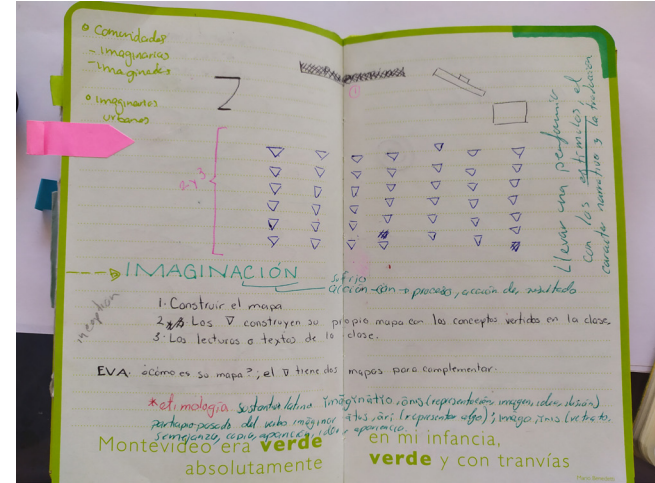 • Comunidades
- Imaginarias
- Imaginadas
• Imaginarios
urbanos
2
1
2 y 3
Llevar una
con los estímulos; el
caracter narrativo y la traducción
IMAGINACIÓN
sufijo
acción -ción → proceso, acción de, resultado
1. Construir el mapa
2. Los ▽ construyen su propio mapa con los conceptos vertidos en la clase.
3. Los lecturas o textos de la clase.
EVA: ¿cómo es su mapa?; el ▽ tiene dos mapas para complementar.
*etimología sustantivo latino imāginātio, ōnis (representación, imagen, idea, ilusión)
participio pasado del verbo imāginor, ātus, āri (representar algo); imago, inis (retrato,
semejanza, copia, apariencia, idea, apariencia.
Montevideo era verde en mi infancia,
absolutamente verde y con tranvías
Mario Benedetti